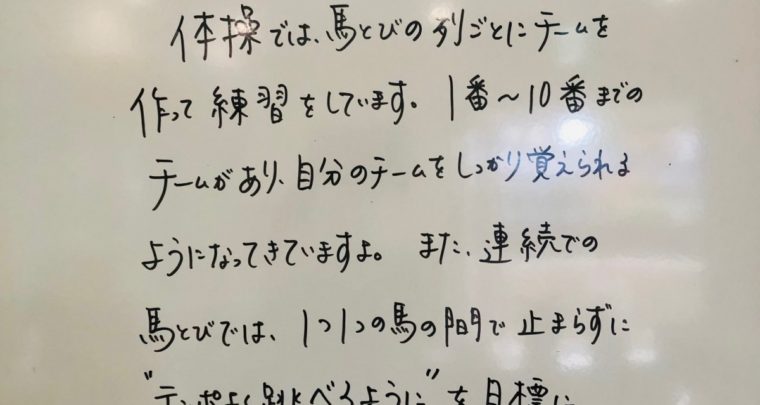 体操では、馬とびの列ごとにチームを
作って練習をしています。1番~10番までの
チームがあり、自分のチームをしっかり覚えられる
ようになってきていますよ。また、連続での
馬とびでは、1つ1つの馬の間で止まらずに
"テンポよく跳べるように"を目標に